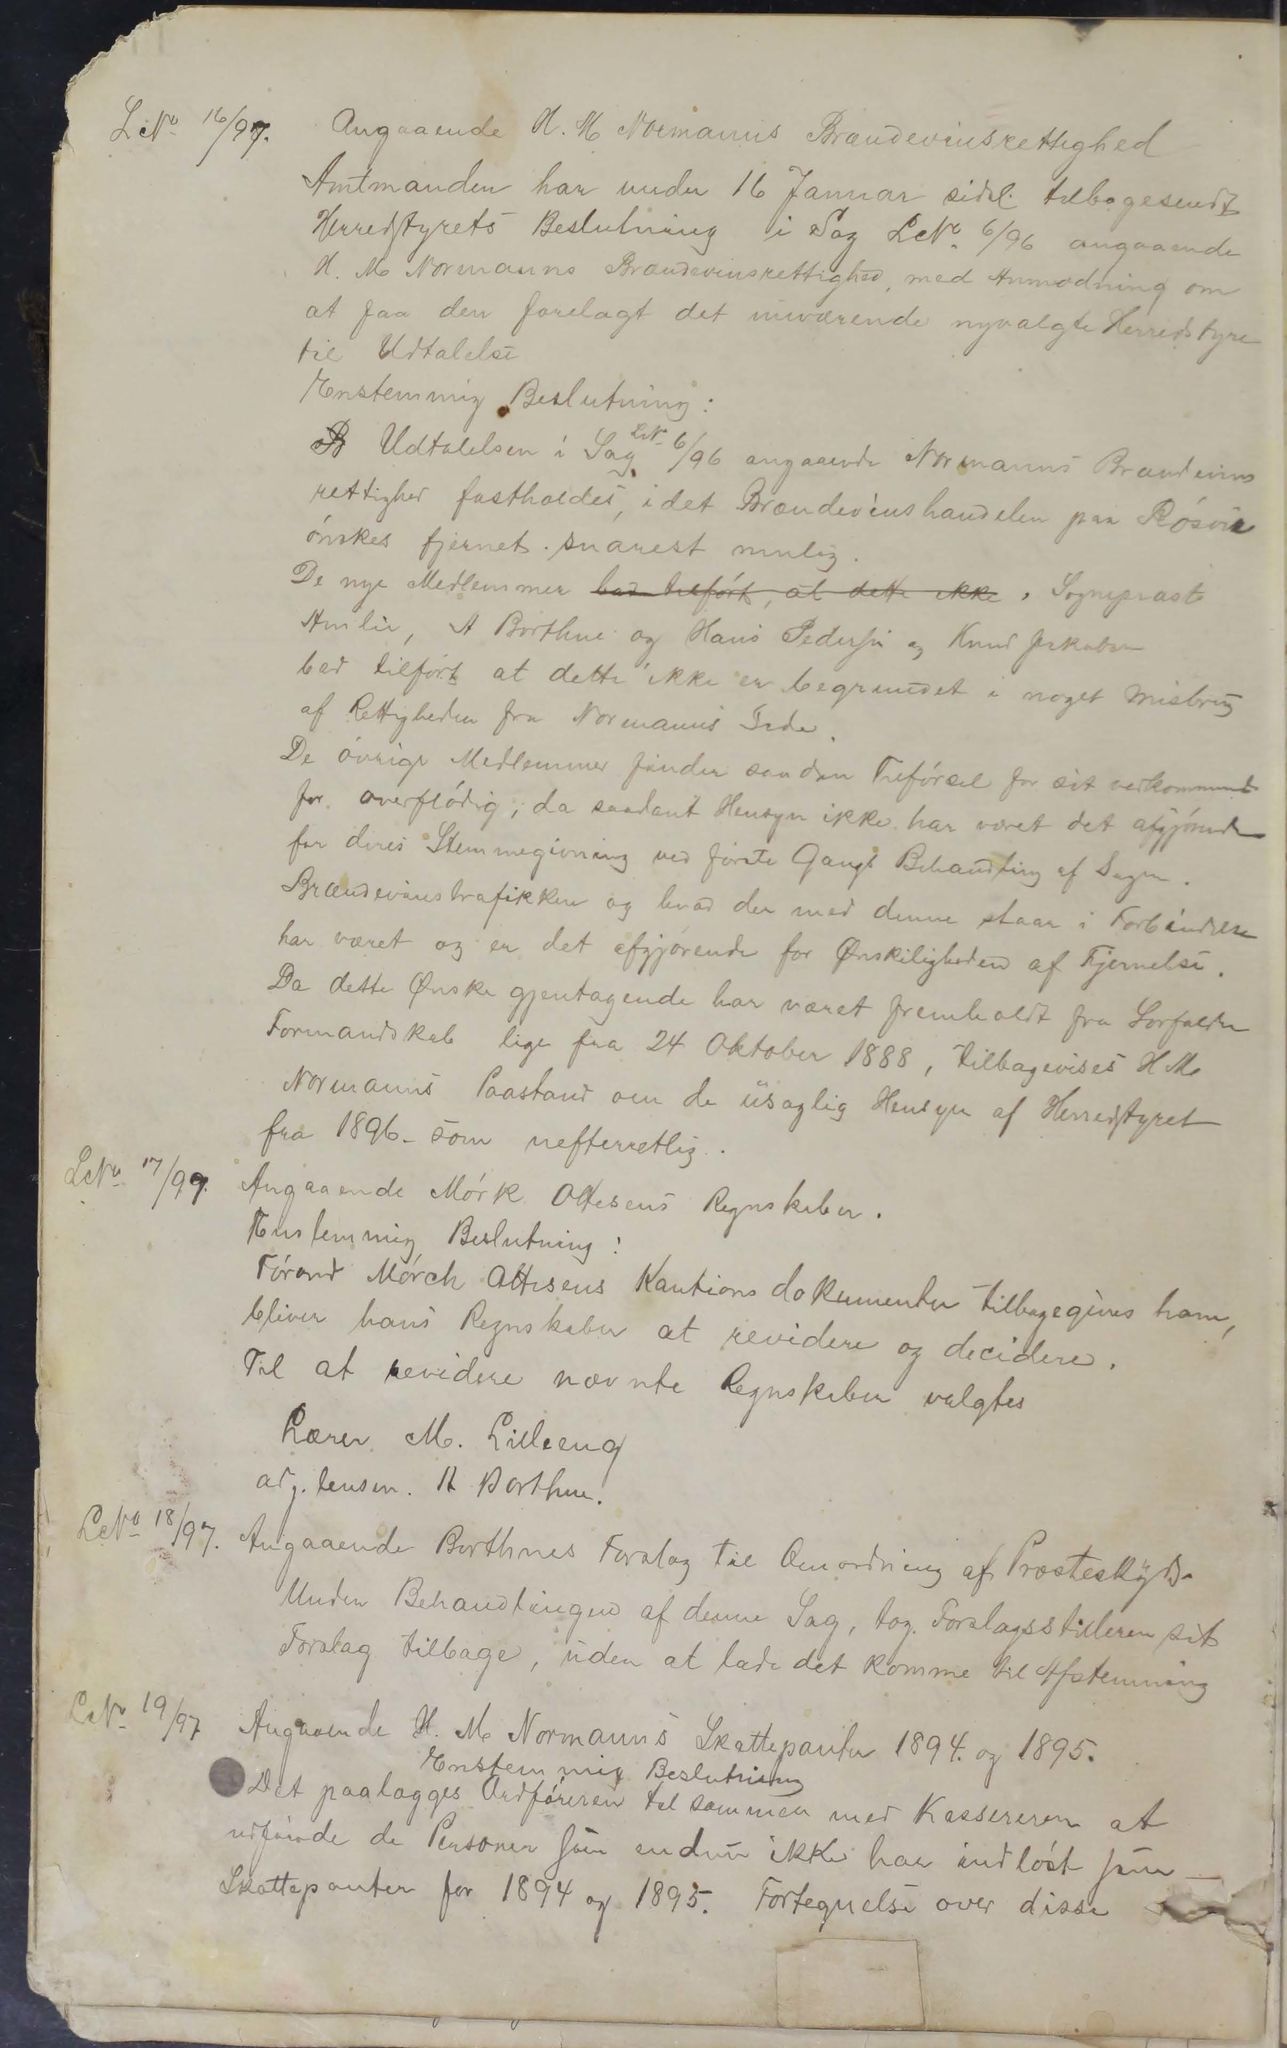 LNo 16/97. Angaaende H. M Normanns Brændevinsrettighed
Amtmanden har under 16 Januar sidsl. tilbagesendt
Herredstyrets Beslutning i Sag LNo 6/96 angaaende
H. M Normanns Brændevinsrettighed, med Anmodning om
at faa den forelagt det nuværende nyvalgte Herredstyre
til Udtalelse
Enstemmig Beslutning:
Udtalelsen i Sag LNo 6/96 angaaende Normanns Brændevins
rettighed fastholdes, idet Brændevinshandelen paa Rósvik
ónskes fjernet snarest mulig.
De nye Medlemmer bad tilfórt, at dette ikke, Sogneprast
Amlie, A Borthne og Hans Pedersen og Knud Jakobsen
bad tilfórt at dette ikke er begrundet i noget Misbrug
af Rettigheden fra Normanns Side.
De óvrige Medlemmer finder saadan Tilfórsel for sit vedkommende
for overflódig, da saadant Hensyn ikke har været det afgjórende
for deres Stemmegivning ved fórste Gangs Behandling af Sagen.
Brændevinstrafikken og hvad der med denne staar i Forbindelse
har været og er det afgjórende for Ønskeligheden af Fjernelse.
Da dette Ønske gjentagende har været fremholdt fra Sorfolden
Formandskab lige fra 24 Oktober 1888, tilbagevises H M
Normanns Paastand om de usaglig Hensyn af Herredstyret
fra 1896 som uefterretlig.
LNo 17/97. Angaaende Mórk Ottesens Regnskaber.
Enstemmig Beslutning:
Fórend Mórch Ottesens Kautionsdokumenter tilbagegives ham,
bliver hans Regnskaber at revidere og decidere.
Til at revidere nævnte Regnskaber valgtes
Lærer M. Lilleeng
adj. lensm. A Borthne.
LNo 18/97. Angaaende Borthnes Forslag til Omordning af Prosteskyds
Under Behandlingen af denne Sag, tog Forslagsstilleren sit
Forslag tilbage, uden at lade det komme til Afstemning
LNo 19/97 Angaaende H. M Normanns Skattepanter 1894. og 1895.
Enstemmig Beslutning
Det paalægges Ordfóreren til sammen med Kassereren at
udfinde de Personer som endnu ikke har indlóst sine
Skattepanter for 1894 og 1895. Fortegnelse over disse